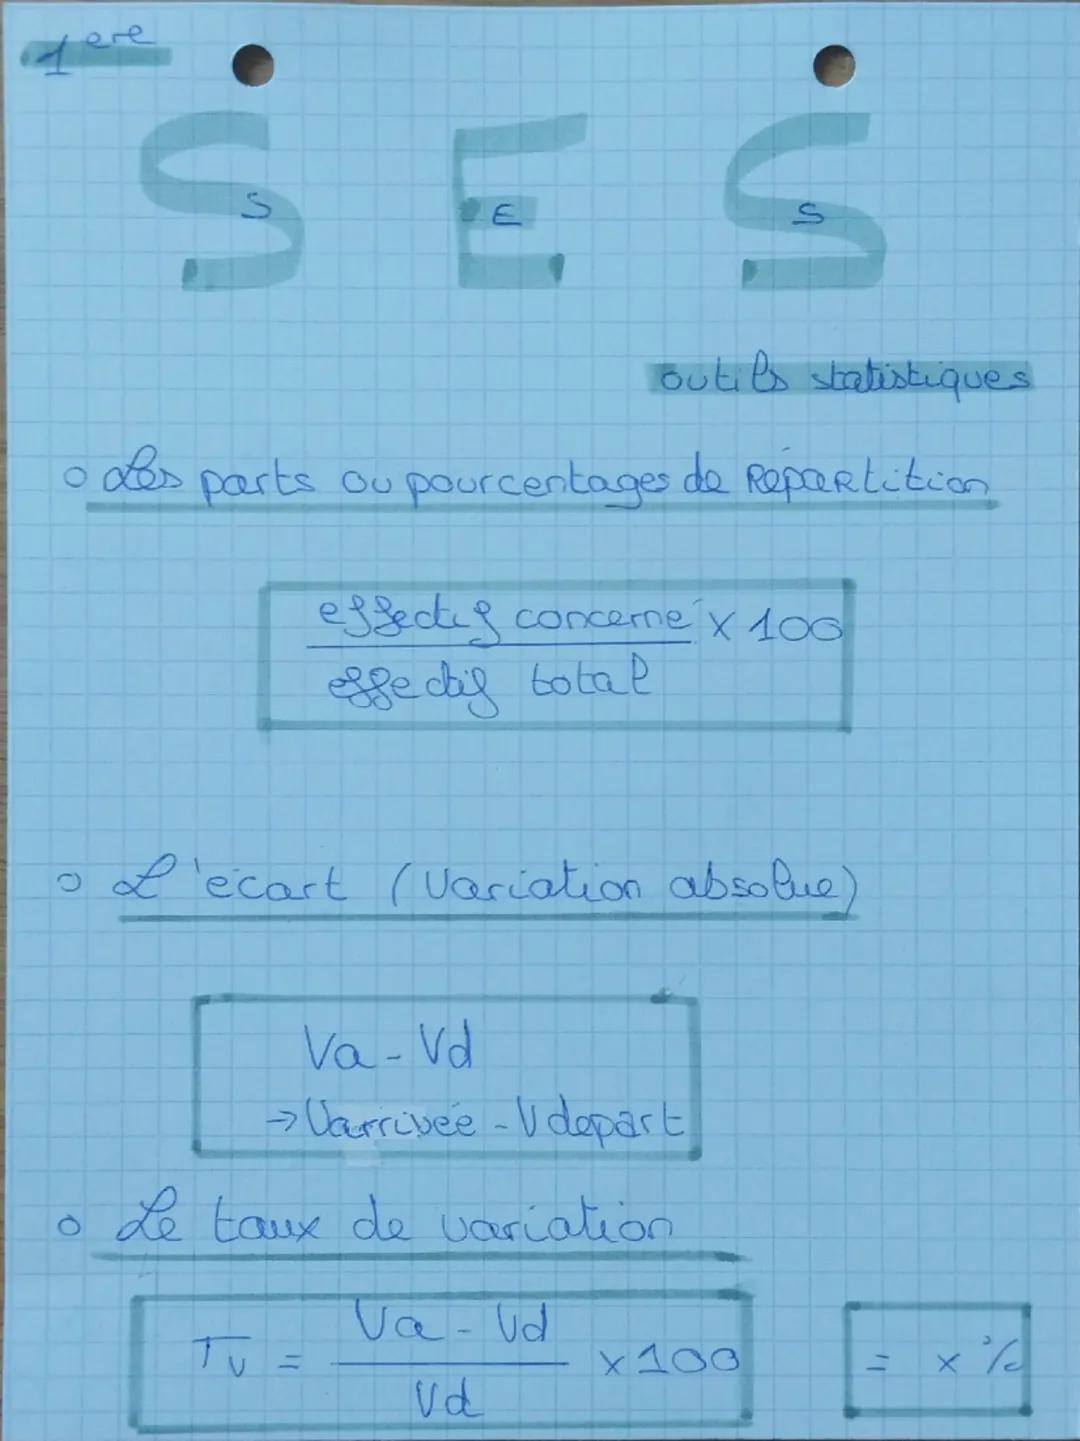 1ere
S E S
S E S
outils statistiques
Les parts ou pourcentages de Répartition
effectif concerné x 100
effectif total
L'écart (Variation absolue)
Va - Vd
→ Varrivée - Vdepart
Le taux de variation
Tv = Va - Vd x 100
Vd
= x %